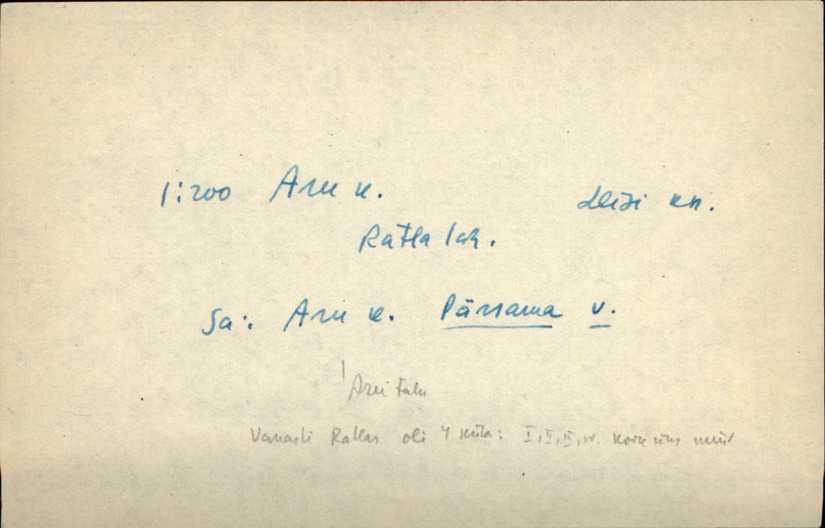 1:200 Aru k. Leisi kn.
Ratla lah.
Sa: Aru k. Pärsama v.
Aru talu
Vanasti Ratlas oli 4 küla: I, II, III, IV.